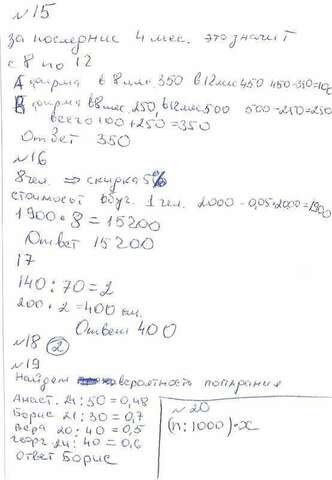 №15
за последние 4 мес. это значит
с 8 по 12
А фирма в 8 мес 350 в 12 мес 450 450-350=100
В фирма в 8 мес. 250, в 12 мес 500 500-250=250
всего 100+250=350
Ответ 350
№16
8 чел. ⇒ скидка 5%
стоимост обуч. 1 чел. 2000 - 0,05·2000=1900
1900·8=15200
Ответ 15200
17
140:70=2
200·2=400 км.
Ответ 400
№18 ②
№19
Найдем вероятность попадания
Анаст. 24:50=0,48
Борис 21:30=0,7
Вера 20:40=0,5
Георг. 24:40=0,6
ответ Борис
№20
(n:1000)·x